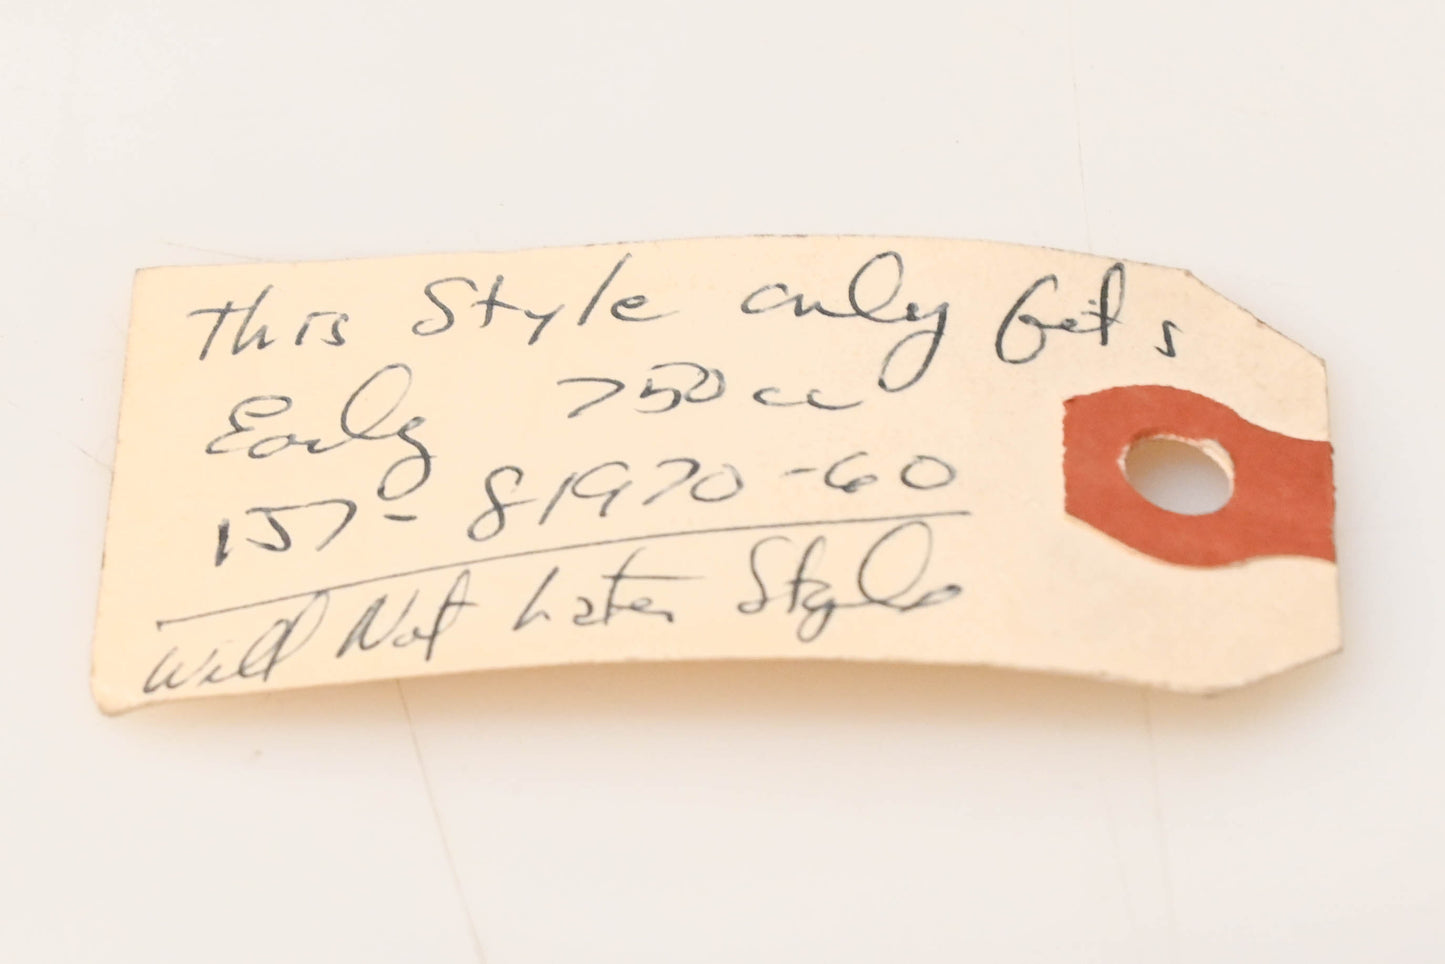 This Style only fits
Early 750cc
157-81970-60
Will Not Later Style